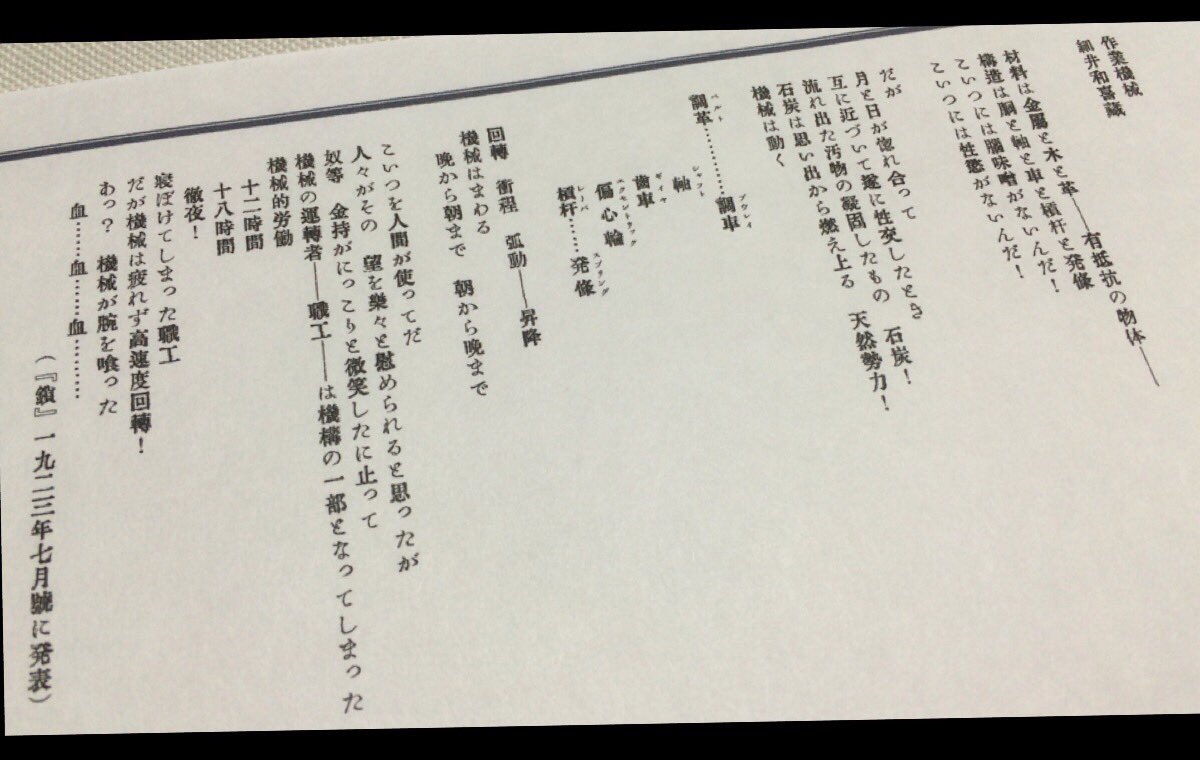 作業機械
細井和喜蔵
材料は金属と木と革――有抵抗の物体――
構造は胴と軸と車と槓杆と発條
こいつには脳味噌がないんだ！
こいつには性慾がないんだ！
だが
月と日が惚れ合って
互に近づいて遂に性交したとき
流れ出た汚物の凝固したもの　石炭！
石炭は思い出から燃え上る　天然勢力！
機械は動く
調革……………調車
ベルト
プウレイ
軸
シャフト
歯車
ギイヤ
偏心輪
エクセントリック
槓杆……発條
レーバ
スプリング
回轉　衝程　弧動――昇降
機械はまわる
晩から朝まで　朝から晩まで
こいつを人間が使ってだ
人々がその　望を樂々と慰められると思ったが
奴等　金持がにっこりと微笑したに止って
機械の運轉者――職工――は機構の一部となってしまった
機械的労働
十二時間
十八時間
徹夜！
寝ぼけてしまった職工
だが機械は疲れず高速度回轉！
あっ？　機械が腕を喰った
血………血………血…………
（『鎖』一九二三年七月號に発表）